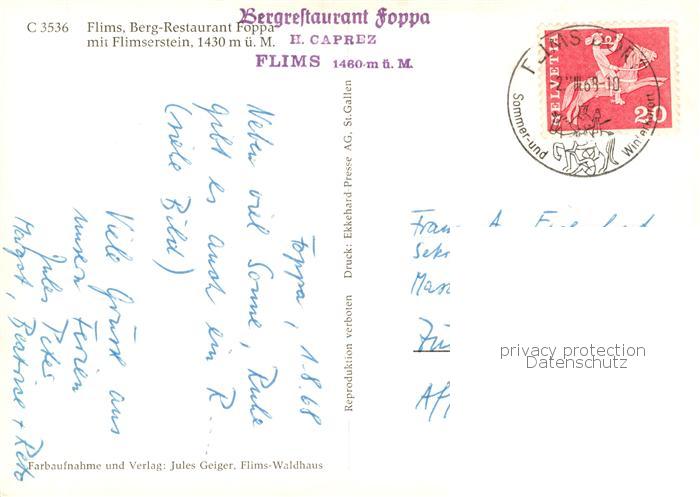 C 3536 Flims, Berg-Restaurant Foppa
mit Flimserstein, 1430 m ü. M.
Bergrestaurant Foppa
H. CAPREZ
FLIMS 1460 m ü. M.
HELVETIA
20
FLIMS DORF
68-10
Sommer- und Wintersport
Foppa, 1.8.68
Neben viel Sonne, Ruhe
gibt es auch ein R....
(siehe Bild)
Viele Grüsse aus
unseren Ferien
Jules Peter
Margot, Beatrice + Reto
Farbaufnahme und Verlag: Jules Geiger, Flims-Waldhaus
Reproduktion verboten Druck: Ekkehard-Presse AG, St. Gallen
Frau A.
Sek
Zü
privacy protection
Datenschutz